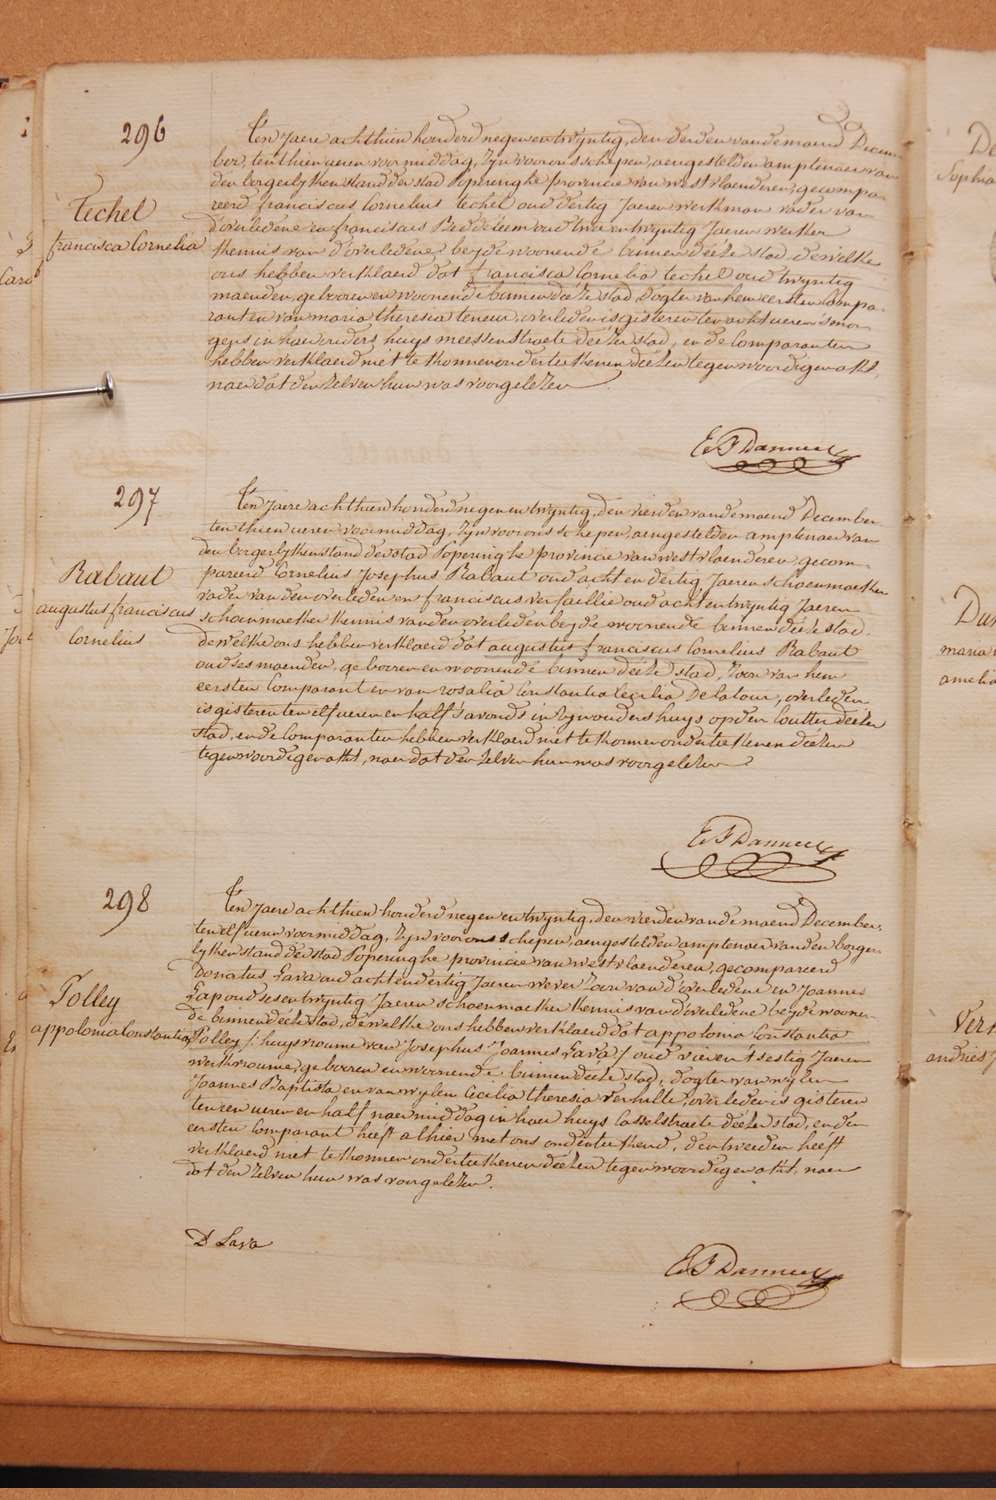 296
Techel
francisca Cornelia
Ten Jaere achthien honderd negen en twyntig, den derden van de maend Decem-
ber, ten thien ueren voormiddag, Zyn voor ons schepen, aengestelden amptenaer van
den borgerlyken stand der stad Poperinghe provincie van westvlaenderen, gecompa-
reerd franciscus Cornelius techel oud dertig Jaeren werkman vader van
d'overledene en franciscus oud twee en twyntig Jaeren werker
kennis van d'overledene, beyde woonende binnen deéze stad, dewelke
ons hebben verklaerd dat francisca Cornelia techel oud twyntig
maenden, gebooren en woonende binnen deéze stad, dogter van hem eersten Compa-
rant en van maria theresia teneur, overleden is gisteren ten acht ueren 's mor-
gens in haer ouders huys meessenstraete deézer stad, en de Comparanten
hebben verklaerd niet te konnen onderteekenen deézen tegenwoordigen akt,
naer dat den zelven hun was voorgelezen
E F Danneel
297
Rabaut
augustus franciscus
Cornelius
Ten Jaere achthien honderd negen en twyntig, den vierden van de maend December
ten thien ueren voormiddag, Zyn voor ons schepen, aengestelden amptenaer van
den borgerlyken stand der stad Poperinghe provincie van westvlaenderen, gecom-
pareerd Cornelius Josephus Rabaut oud acht en dertig Jaeren schoenmaeker
vader van den overleden en franciscus versaillie oud acht en twyntig Jaeren
schoenmaeker kennis van den overleden beyde woonende binnen deéze stad,
dewelke ons hebben verklaerd dat augustus franciscus Cornelius Rabaut
oud ses maenden, gebooren en woonende binnen deéze stad, Zoon van hem
eersten Comparant en van rosalia Constantia Cecilia Delatour, overleden
is gisteren ten elf ueren en half 's avonds in Zyn ouders huys op den Coutter deézer
stad, en de Comparanten hebben verklaerd niet te konnen onderteekenen deézen
tegenwoordigen akt, naer dat den zelven hun was voorgelezen
E F Danneel
298
Tolley
appolonia Constantia
Ten Jaere achthien honderd negen en twyntig, den vierden van de maend December,
ten elf ueren voormiddag, Zyn voor ons schepen, aengestelden amptenaer van den borger-
lyken stand der stad Poperinghe provincie van westvlaenderen, gecompareerd
Donatus Lava oud acht en dertig Jaeren wever Zoon van d'overledene en Joannes
Lap oud ses en twyntig Jaeren schoenmaeker kennis van d'overledene beyde woonen-
de binnen deéze stad, dewelke ons hebben verklaerd dat appolonia Constantia
Tolley / huysvrouwe van Josephus Joannes Lava / oud vier en t'sestig Jaeren
werkvrouwe, gebooren en woonende binnen deéze stad, dogter van wylen
Joannes Baptista en van wylen Cecilia theresia verhulle, overleden is gisteren
ten een ueren en half naermiddag in haer huys Casselstraete deézer stad, en den
eersten Comparant heeft alhier met ons onderteekend, den tweeden heeft
verklaerd niet te konnen onderteekenen deézen tegenwoordigen akt, naer
dat den zelven hun was voorgelezen.
D Lava
E F Danneel